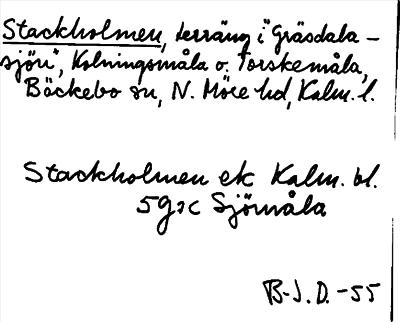 Stackholmen, terräng i "Gräsdala-
sjön", Kolningsmåla o. Torskemåla,
Bäckebo sn, N. Möre hd, Kalm. l.
Stackholmen ek Kalm. bl.
5g3c Sjömåla
B-J. D. -55